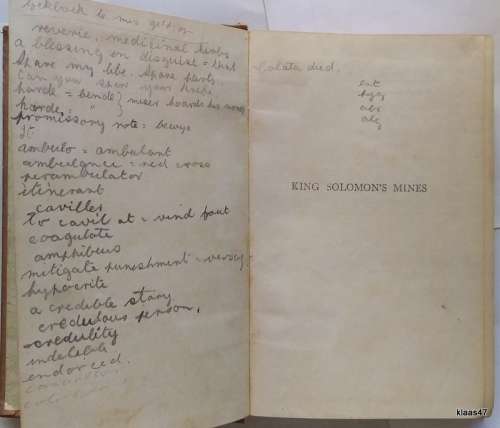 reverie, medicinal herbs
a blessing en disguise = that
Spare my life. Spare parts
Can you spare your
horde = bende } miser hoards his money
horde, " }
promissory note = bewys
It
ambulo = ambulant
ambulance = red cross
perambulator
itinerant
cavilles
to cavil at = vind fout
coagulate
amphibeus
mitigate punishment =
hypocrite
a credible story
credulous person,
credulity
indelible
endorced.
died.
eat
KING SOLOMON'S MINES
klaas47